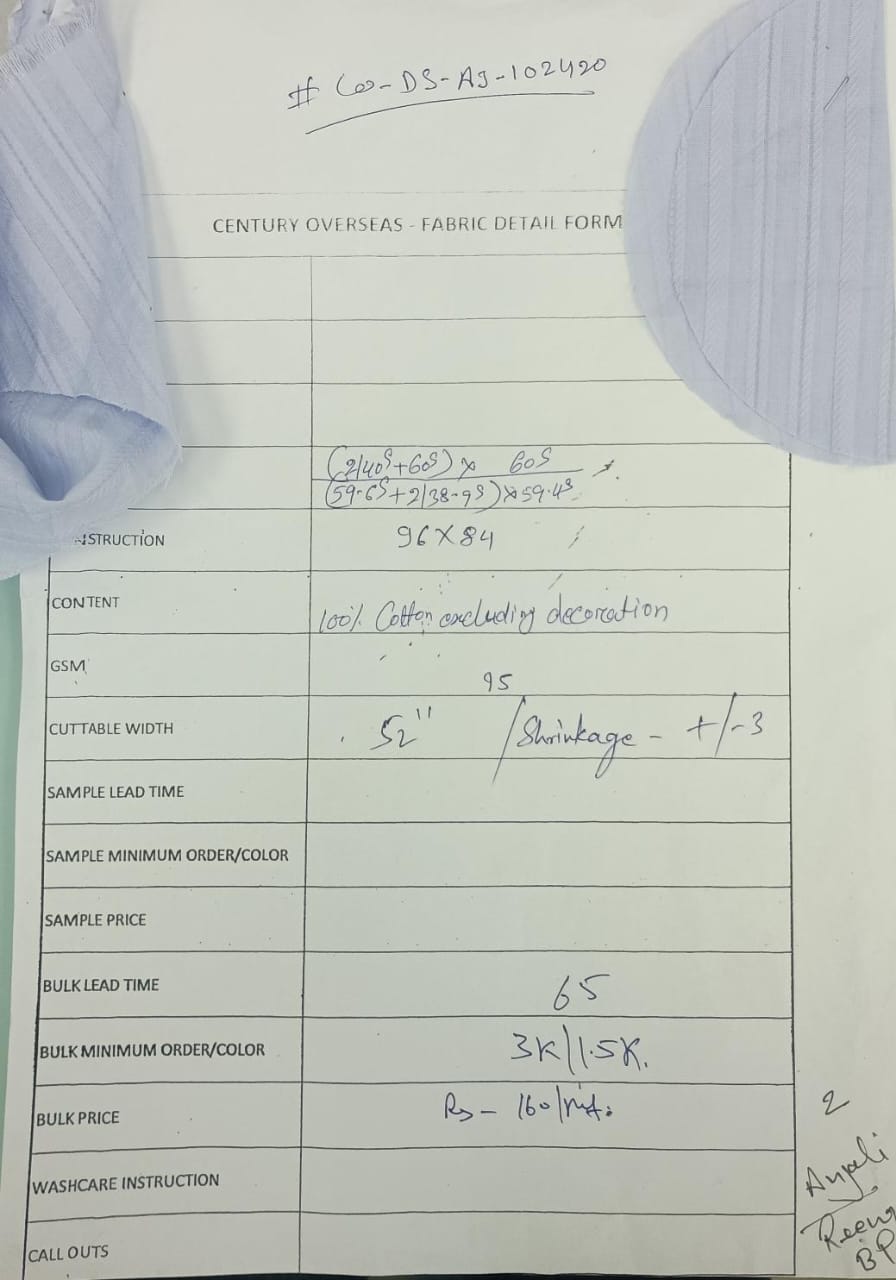 # Cos-DS-AJ-102420
CENTURY OVERSEAS - FABRIC DETAIL FORM
(2/40s+60s) x 60s
(59.6s+2/38.9s)x59.4s
STRUCTION 96X84
CONTENT 100% Cotton excluding decoration
GSM 95
CUTTABLE WIDTH 52" / Shrinkage - +/-3
SAMPLE LEAD TIME
SAMPLE MINIMUM ORDER/COLOR
SAMPLE PRICE
BULK LEAD TIME 65
BULK MINIMUM ORDER/COLOR 3K/1.5K.
BULK PRICE Rs - 160/mt.
WASHCARE INSTRUCTION
CALL OUTS
2
Anjali
BP